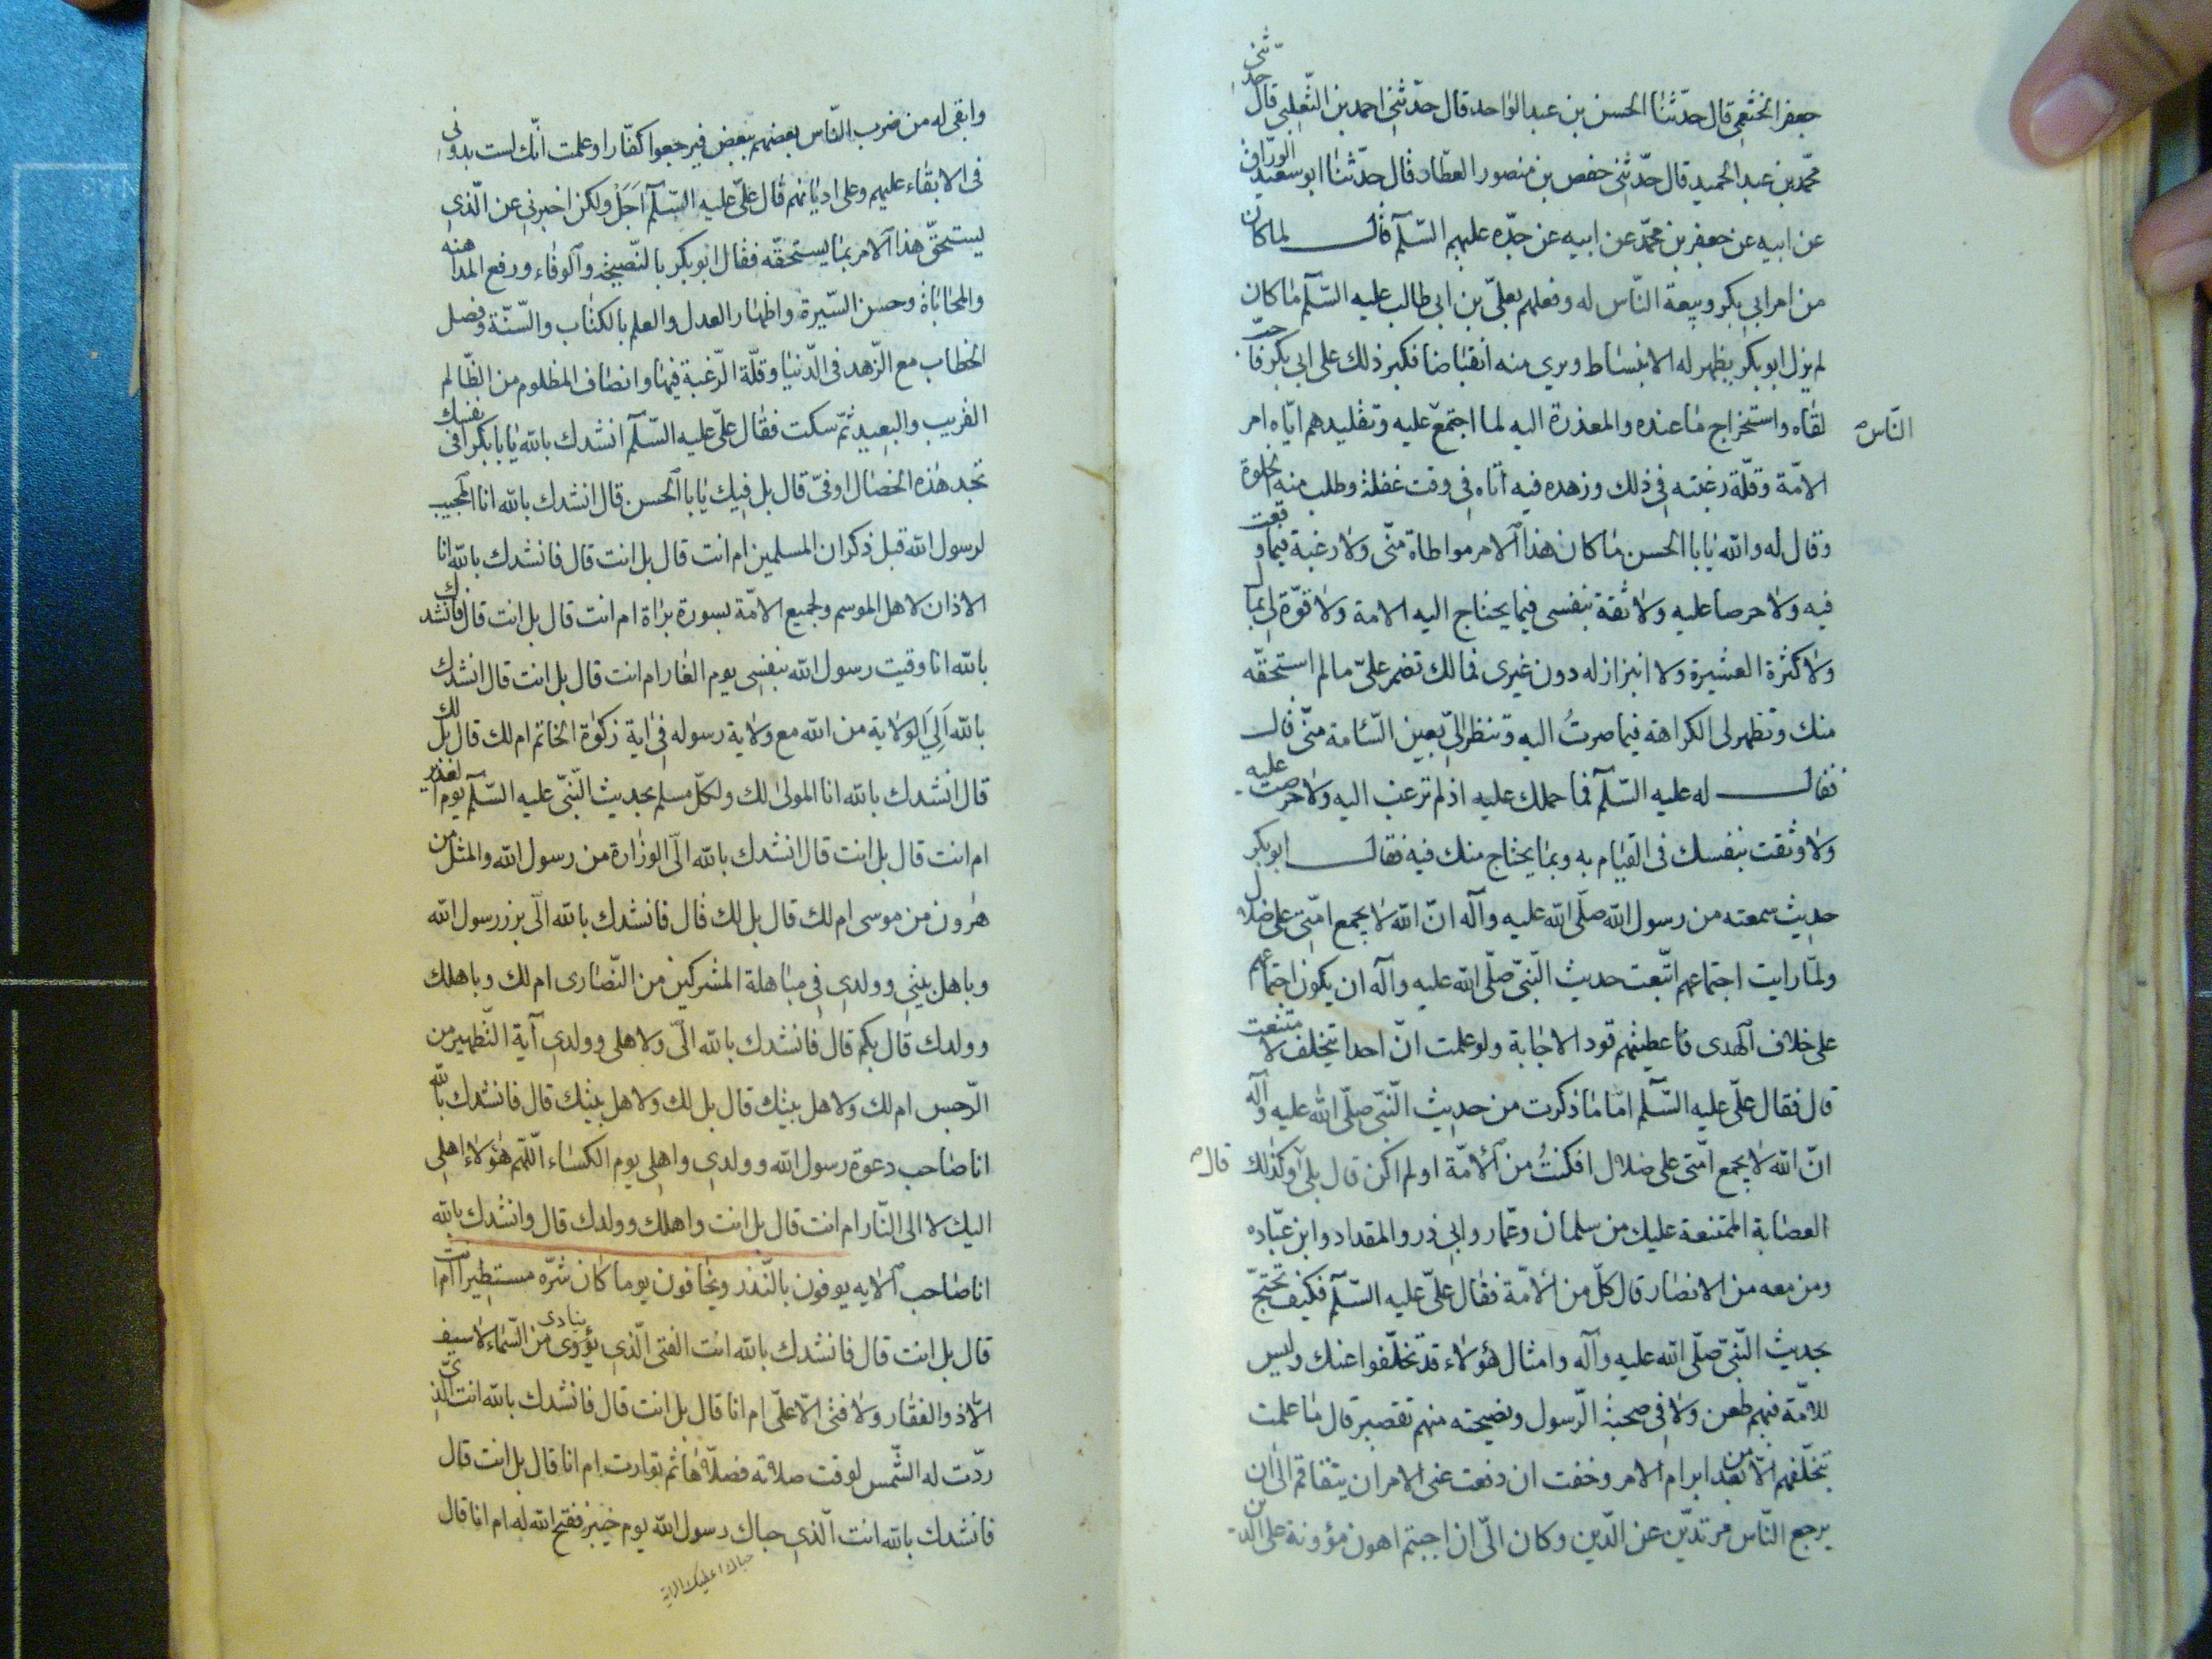 جعفر الخثعمی قال حدّثنا الحسن بن عبد الواحد قال حدّثنی احمد بن الثّعلبی قال حدّثنی
محمّد بن عبد الحمید قال حدّثنی حفص بن منصور العطّار قال حدّثنا ابو سعید الورّاق
عن ابیه عن جعفر بن محمّد عن ابیه عن جدّه علیهم السّلم قال لما کان
من امر ابی بکر و بیعة النّاس له و فعلهم بعلیّ بن ابی طالب علیه السّلم ما کان
لم یزل ابو بکر یظهر له الانبساط و یری منه انقباضا فکبر ذلك علی ابی بکر فاحبّ
لقاه و استخراج ما عنده و المعذرة الیه لما اجتمع علیه و تقلیدهم ایّاه امر
النّاس
الامّة و قلّة رغبته فی ذلك و زهده فیه اتاه فی وقت غفلة و طلب منه الخلوة
و قال له و الله یا با الحسن ما کان هذا الامر مواطاة منّی و لا رغبة فیما وقعت
فیه و لا حرصا علیه و لا ثقة بنفسی فیما یحتاج الیه الامة و لا قوّة لی بما
و لا کثرة العشیرة و لا ابتزاز له دون غیری فمالك تضمر علیّ ما لم استحقّه
منك و تظهر لی الکراهة فیما صرتُ الیه و تنظر الیّ بعین السّئامة منّی قال
فقال له علیه السّلم فما حملك علیه اذ لم ترغب الیه و لا حرصت علیه
و لا وثقت بنفسك فی القیام به و بما یحتاج منك فیه فقال ابو بکر
حدیث سمعته من رسول الله صلّی الله علیه و آله انّ الله لا یجمع امّتی علی ضلال
و لمّا رایت اجتماعهم اتّبعت حدیث النّبیّ صلّی الله علیه و آله ان یکون اجتماعهم
علی خلاف الهدی فاعطیتهم قود الاجابة و لو علمت انّ احدا یتخلف لامتنعت
قال فقال علیّ علیه السّلم امّا ما ذکرت من حدیث النّبیّ صلّی الله علیه و آله
انّ الله لا یجمع امّتی علی ضلال افکنتُ من الامّة او لم اکن قال بلی و کذلك
قال
العصابة الممتنعة علیك من سلمان و عمّار و ابی ذر و المقداد و ابن عبّاده
و من معه من الانصار قال کلّ من الامّة فقال علیّ علیه السّلم فکیف تحتجّ
بحدیث النّبیّ صلّی الله علیه و آله و امثال هؤلاء قد تخلّفوا عنك و لیس
للامّة فیهم طعن و لا فی صحبة الرّسول و نصیحته منهم تقصیر قال ما علمت
بتخلّفهم الّا من بعد ابرام الامر و خفت ان دفعت عنی الامر ان یتفاقم الی ان
یرجع النّاس مرتدّین عن الدّین و کان الیّ ان اجبتم اهون مؤونة علی الدین
و ابقی له من ضرب النّاس بعضهم ببعض فیرجعوا کفّارا و علمت انّك لست بدونی
فی الابقاء علیهم و علی ادیانهم قال علیّ علیه السّلم اَجَلْ و لکن اخبرنی عن الّذی
یستحقّ هذا الامر بما یستحقّه فقال ابو بکر بالنّصیحة و الوفاء و رفع المداهنه
و المحاباة و حسن السّیرة و اظهار العدل و العلم بالکتاب و السّنّة و فصل
الخطاب مع الزّهد فی الدّنیا و قلّة الرّغبة فیها و انصاف المظلوم من الظّالم
القریب و البعید ثمّ سکت فقال علیّ علیه السّلم انشدك بالله یا بابکر افی نفسك
تجد هذه الخصال او فیّ قال بل فیك یا با الحسن قال انشدك بالله انا المجیب
لرسول الله قبل ذکران المسلمین ام انت قال بل انت قال فانشدك بالله انا
الاذان لاهل الموسم و لجمیع الامّة بسورة براة ام انت قال بل انت قال فانشدك
بالله انا وقیت رسول الله بنفسی یوم الغار ام انت قال بل انت قال انشدك
بالله اَلِیَ الولایة من الله مع ولایة رسوله فی ایة زکوة الخاتم ام لك قال بل لك
قال انشدك بالله انا المولی لك و لکلّ مسلم بحدیث النّبیّ علیه السّلم یوم الغدیر
ام انت قال بل انت قال انشدك بالله الّی الوزارة من رسول الله و المثل من
هرون من موسی ام لك قال بل لك قال فانشدك بالله الّی برز رسول الله
و باهل بیتی و ولدی فی مباهلة المشرکین من النّصاری ام لك و باهلك
و ولدك قال بکم قال فانشدك بالله الّی و لاهلی و ولدی آیة التّطهیر من
الرّجس ام لك و لاهل بیتك قال بل لك و لاهل بیتك قال فانشدك بالله
انا صاحب دعوة رسول الله و ولدی و اهلی یوم الکساء اللّهم هؤلاء اهلی
الیك لا الی النّار ام انت قال بل انت و اهلك و ولدك قال و انشدك بالله
انا صاحب الایه یوفون بالنّذر و یخافون یوما کان شرّه مستطیرا ام انت
قال بل انت قال فانشدك بالله انت الفتی الّذی یؤوی ینادی من السّماء لا سیف
الّا ذو الفقار و لا فتی الّا علیّ ام انا قال بل انت قال فانشدك بالله انت الذیّ
ردّت له الشّمس لوقت صلاته فصلّاها ثم توارت ام انا قال بل انت قال
فانشدك بالله انت الّذی حباك رسول الله یوم خیبر ففتح الله له ام انا قال
حباك اعطیك الرایة